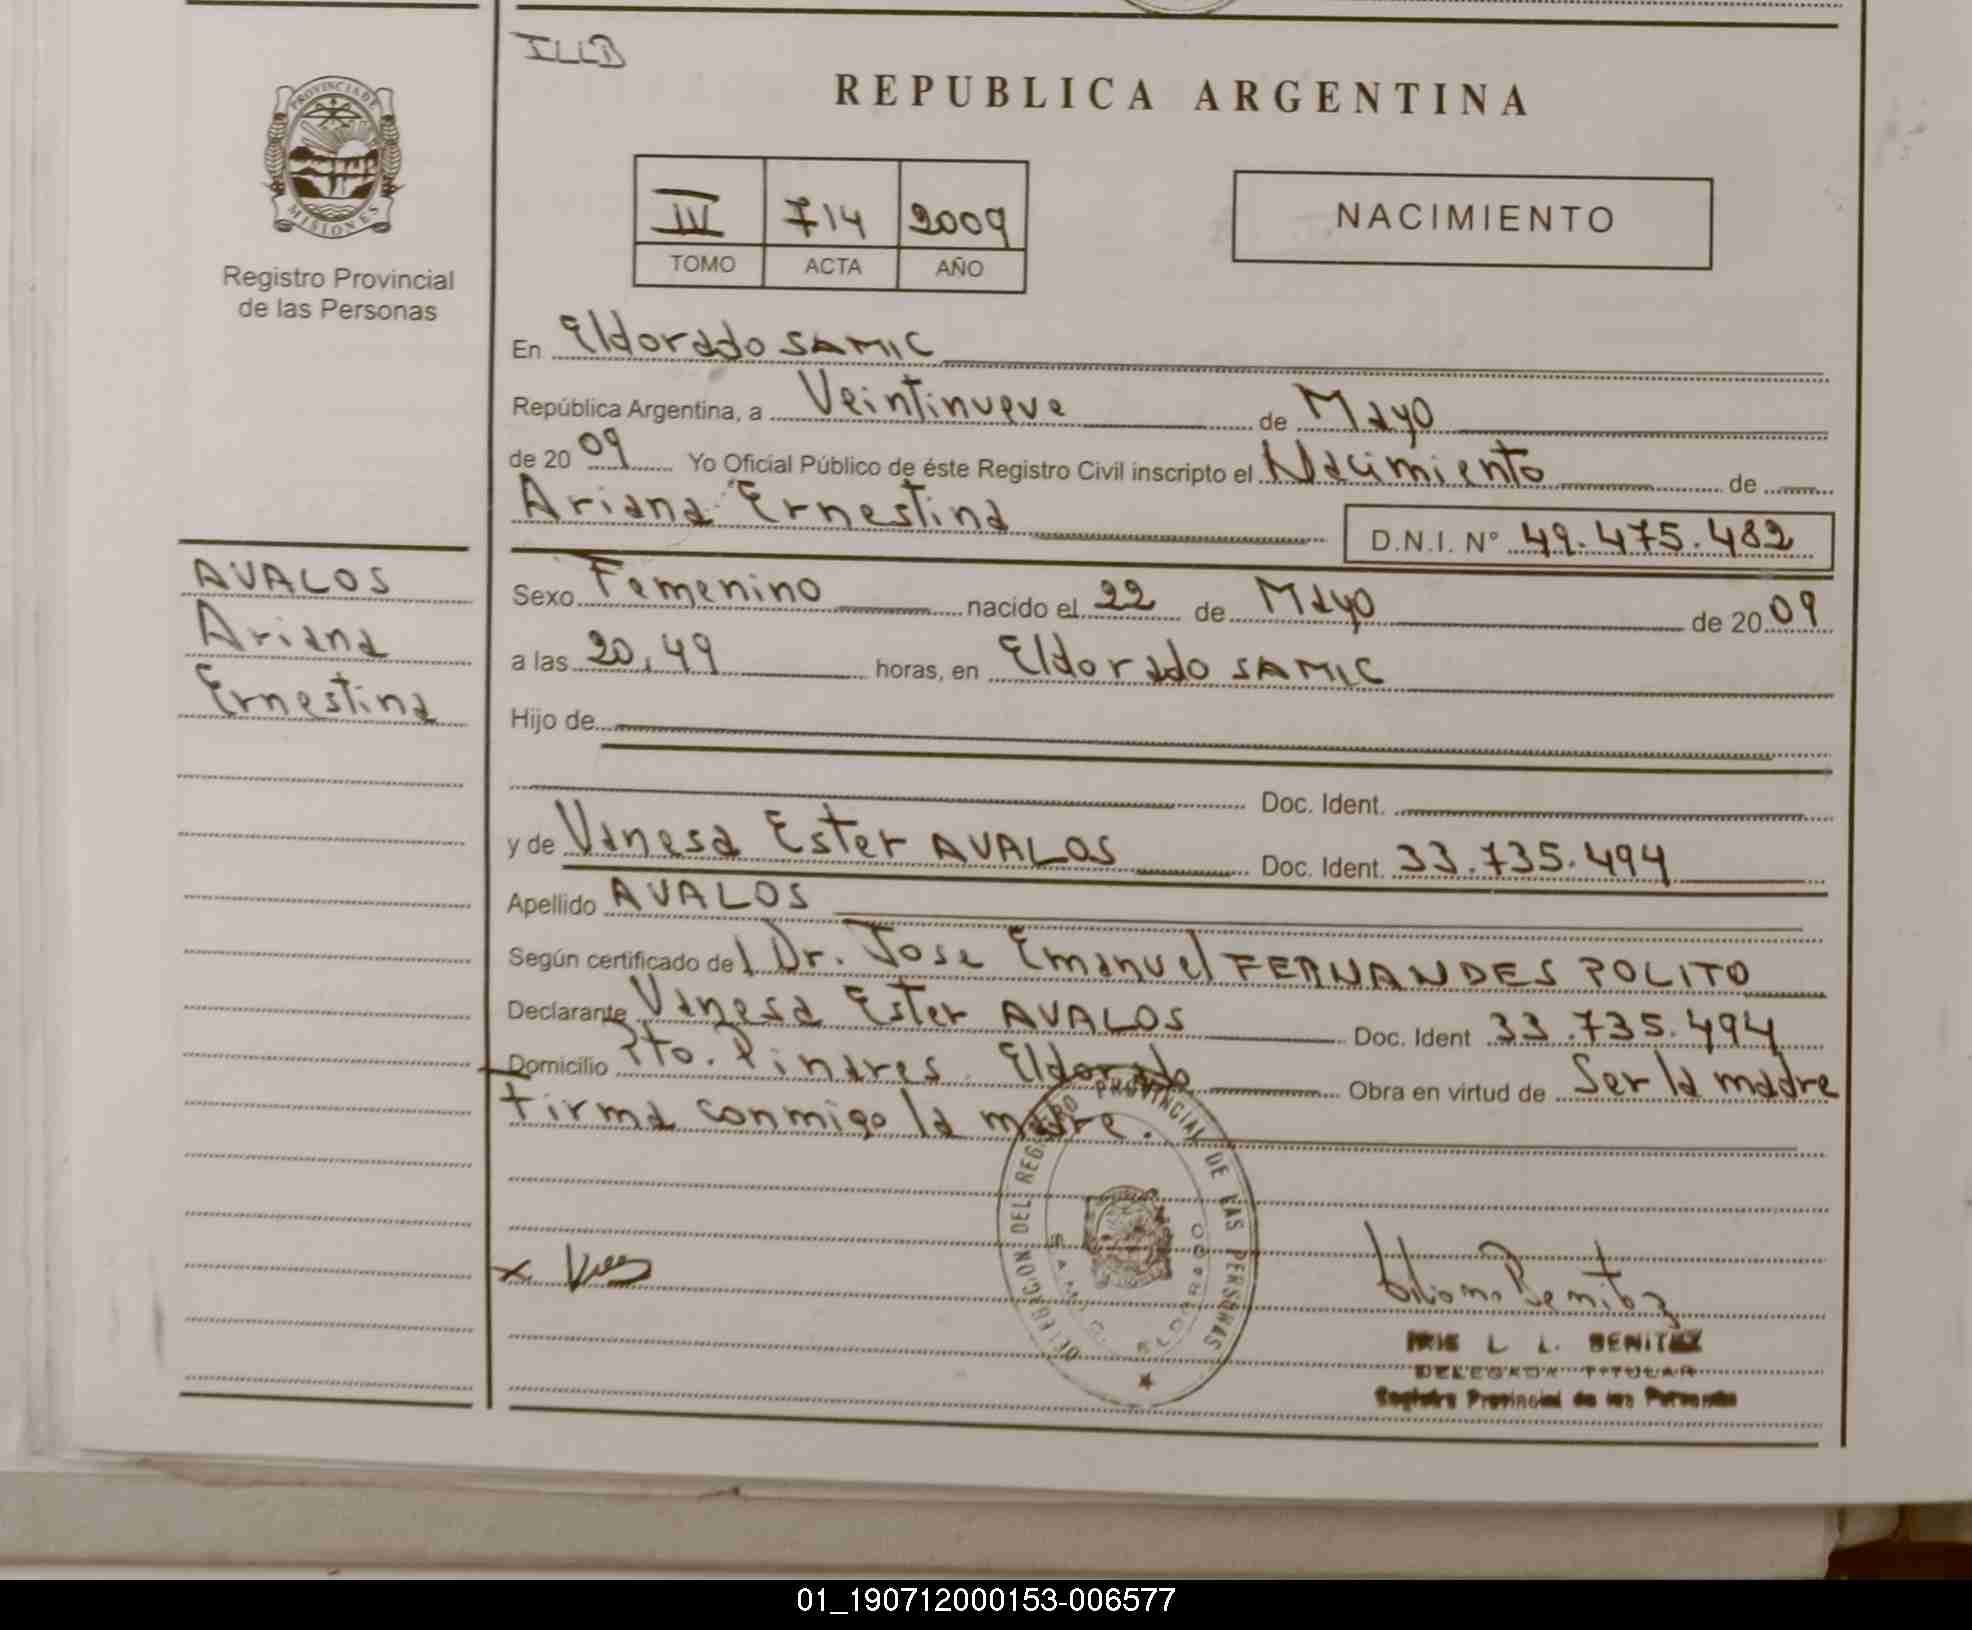 ILLB
REPUBLICA ARGENTINA
PROVINCIA DE
MISIONES
Registro Provincial
de las Personas
III 714 2009
TOMO ACTA AÑO
NACIMIENTO
En Eldorado SAMIC
República Argentina, a Veintinueve de Mayo
de 20 09 Yo Oficial Público de éste Registro Civil inscripto el Nacimiento de
Ariana Ernestina D.N.I. N° 49.475.482
AVALOS
Ariana
Ernestina
Sexo Femenino nacido el 22 de Mayo de 20 09
a las 20,49 horas, en Eldorado SAMIC
Hijo de
Doc. Ident.
y de Vanesa Ester AVALOS Doc. Ident. 33.735.494
Apellido AVALOS
Según certificado del Dr. Jose Emanuel FERNANDES POLITO
Declarante Vanesa Ester AVALOS Doc. Ident 33.735.494
Domicilio Pto. Pinares Eldorado Obra en virtud de Ser la madre
firma conmigo la madre.
DELEGACION DEL REGISTRO PROVINCIAL DE LAS PERSONAS
ELDORADO
x
Benitez
IRIS L. L. BENITEZ
DELEGADA TITULAR
Registro Provincial de las Personas
01_190712000153-006577